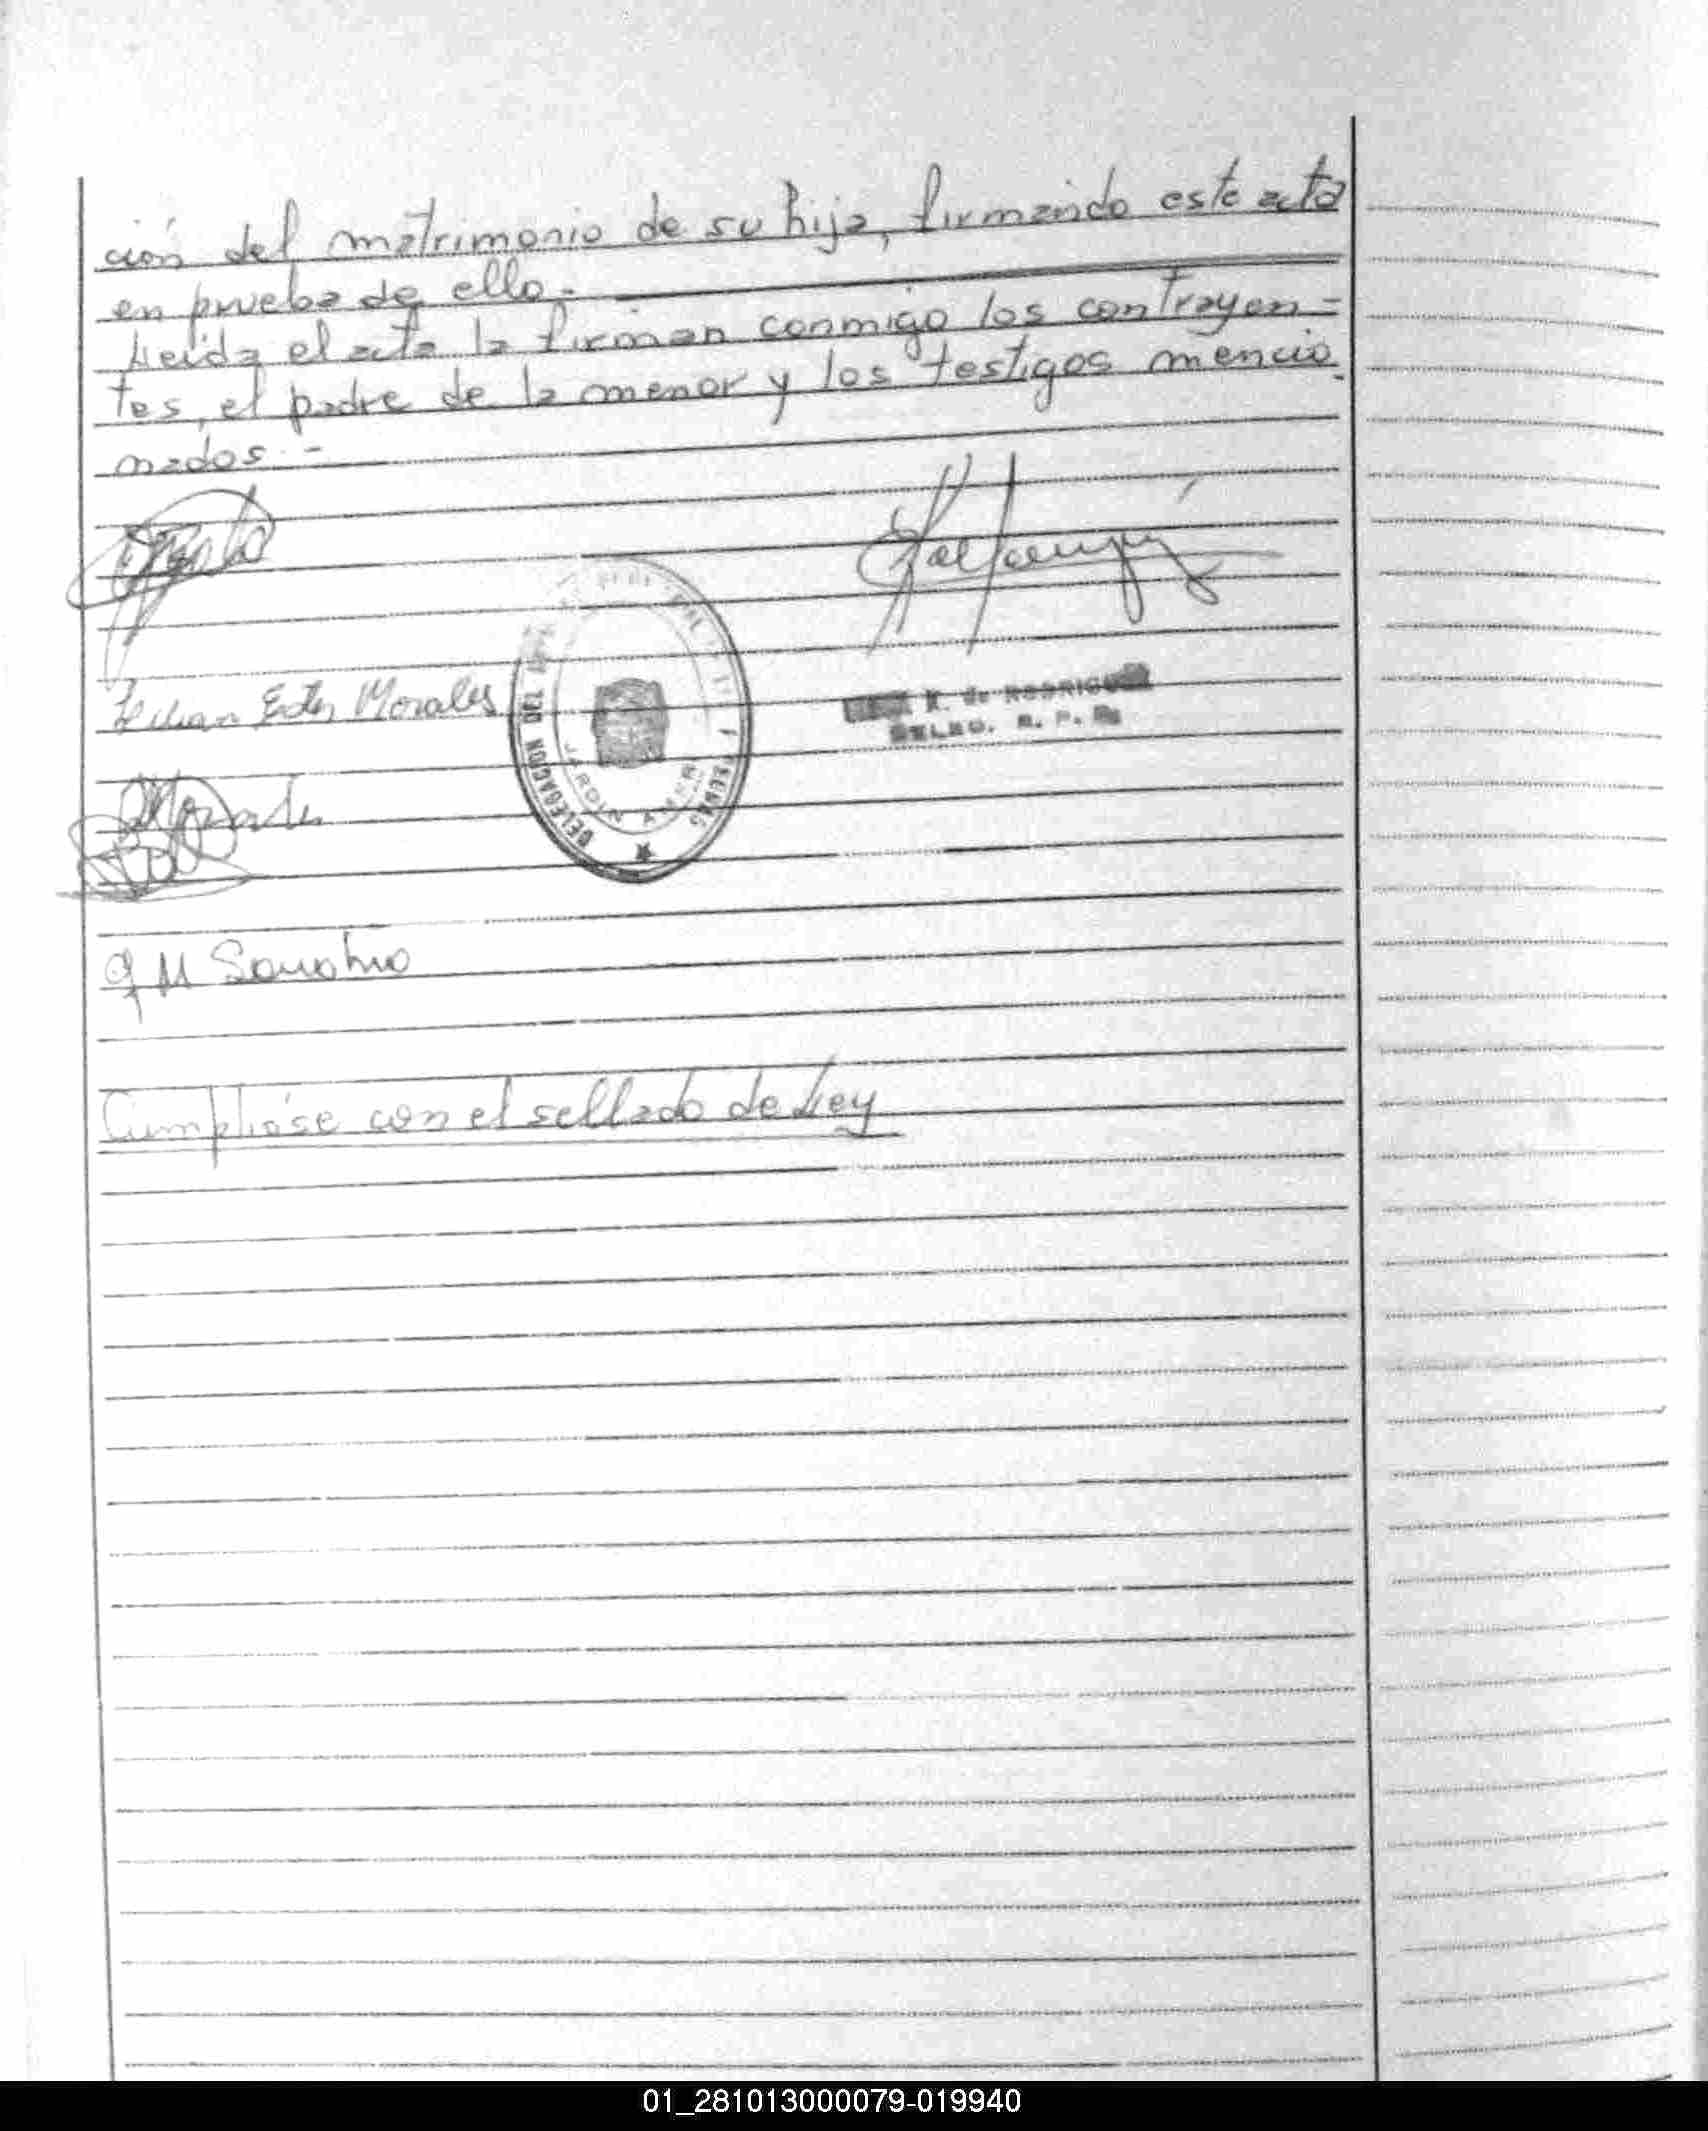 ción del matrimonio de su hija, firmando este acta
en prueba de ello.-
Leída el acta la firman conmigo los contrayen=
tes, el padre de la menor y los testigos mencio
nados.-
Lilian Ester Morales
DELEGACION DEL
JARDIN AMER
R. de RODRIGUEZ
DELEG. R. P.
Cumplióse con el sellado de Ley
01_281013000079-019940